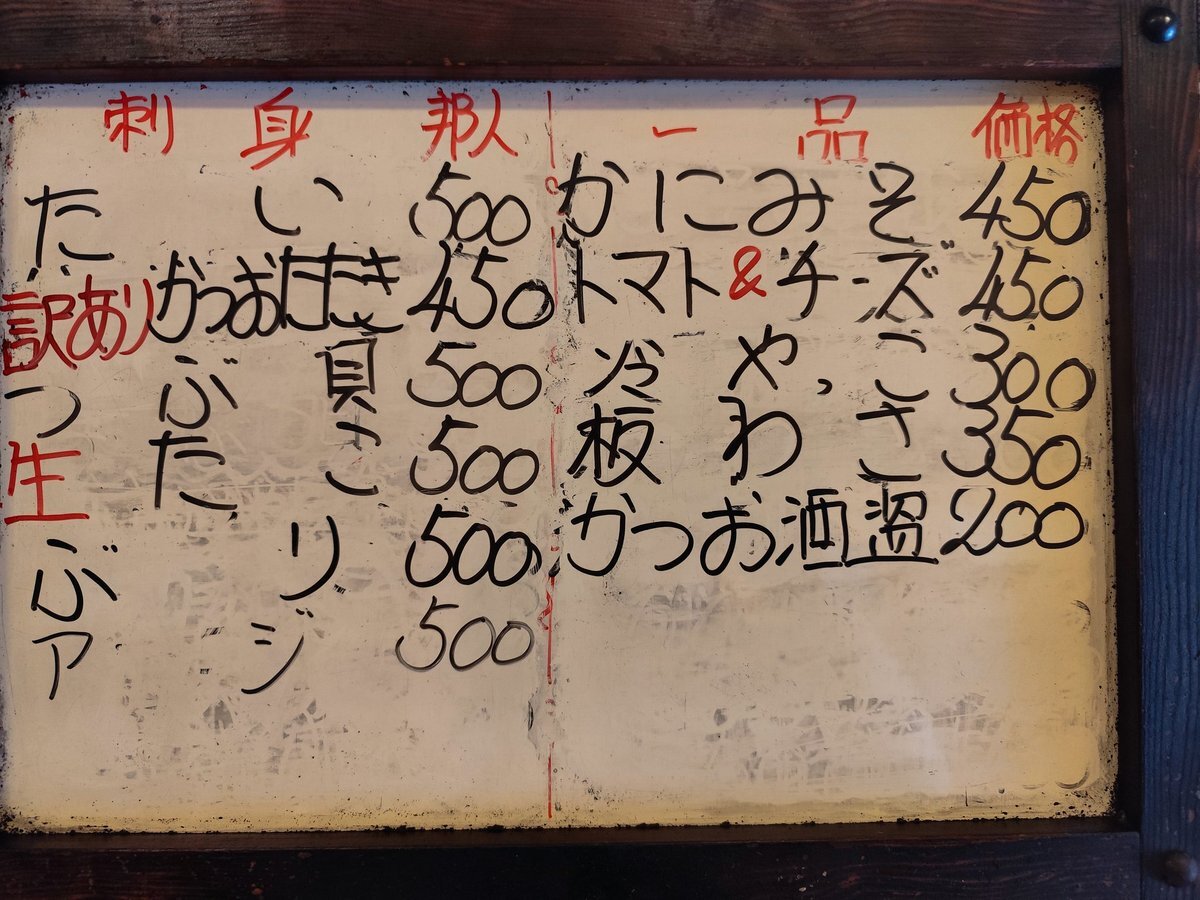 刺身 邦人
たい 500
訳あり かつおたたき 450
つぶ貝 500
生たこ 500
ぶり 500
アジ 500
一品 価格
かにみそ 450
トマト&チーズ 450
冷やっこ 300
板わさ 350
かつお酒盗 200